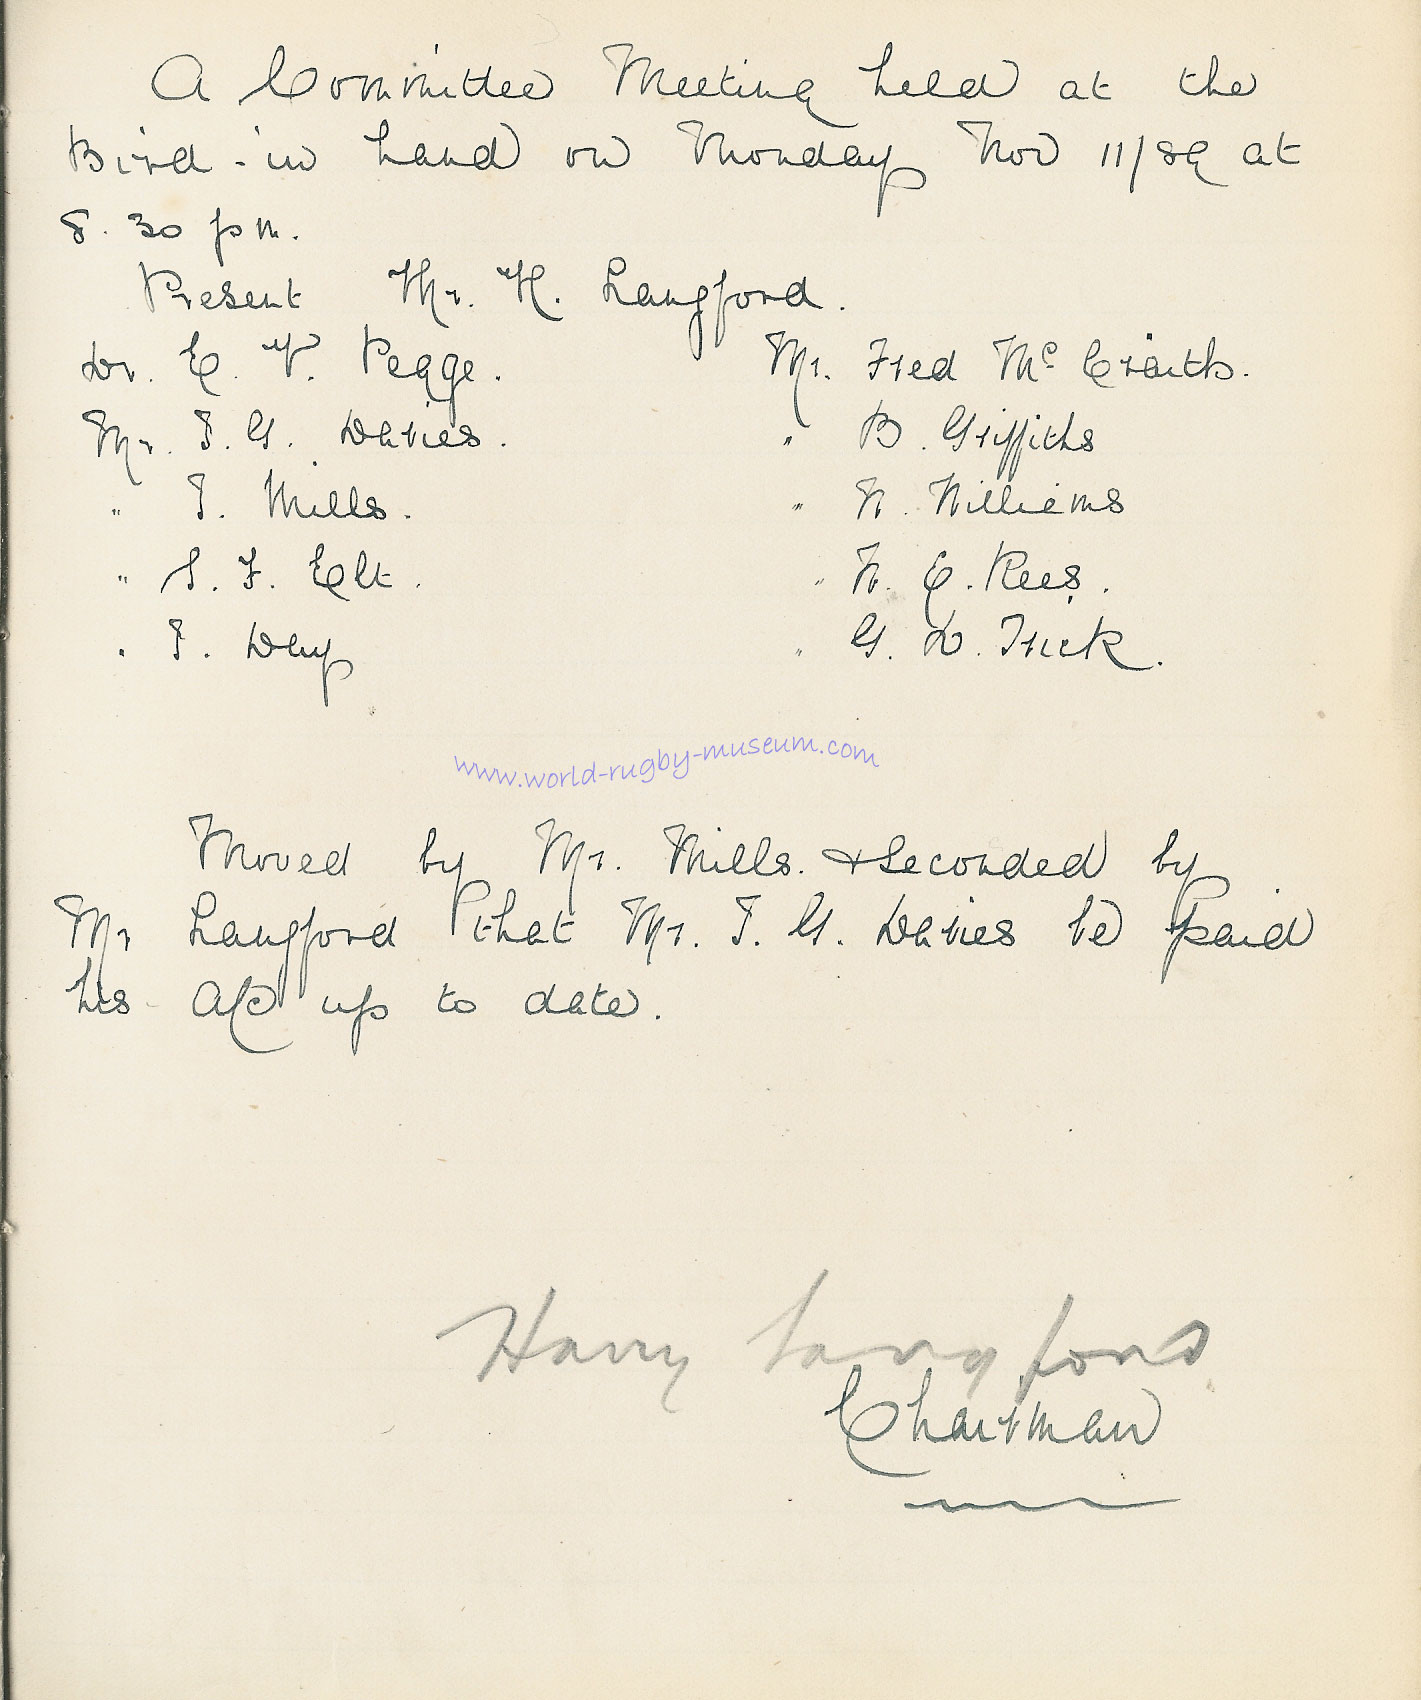 A Committee Meeting held at the
Bird-in hand on Monday Nov 11/89 at
8.30 pm.
Present Mr. H. Langford.
Dr. E. V. Pegge. Mr. Fred Mc Craith.
Mr. T. G. Davies. " B. Griffiths
" T. Mills. " W. Williams
" S. F. Elt. " W. E. Rees.
" T. Day " G. D. Trick.
www.world-rugby-museum.com
Moved by Mr. Mills. & Seconded by
Mr Langford that Mr. T. G. Davies be paid
his A/C up to date.
Harry Langford
Chairman